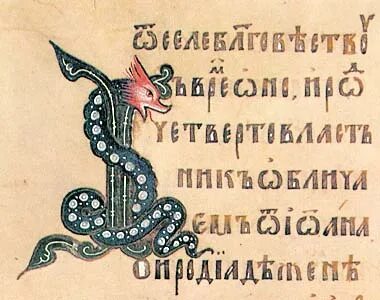 Ѿселеблговѣствоу
ъврⷨеѡно, ирѡⷣ
четвертовласть
никъѡблича
емъѿіѡана
оиродіадѣженѣ